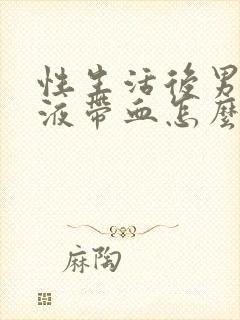 性生活後男
液帶血怎麼
麻陶